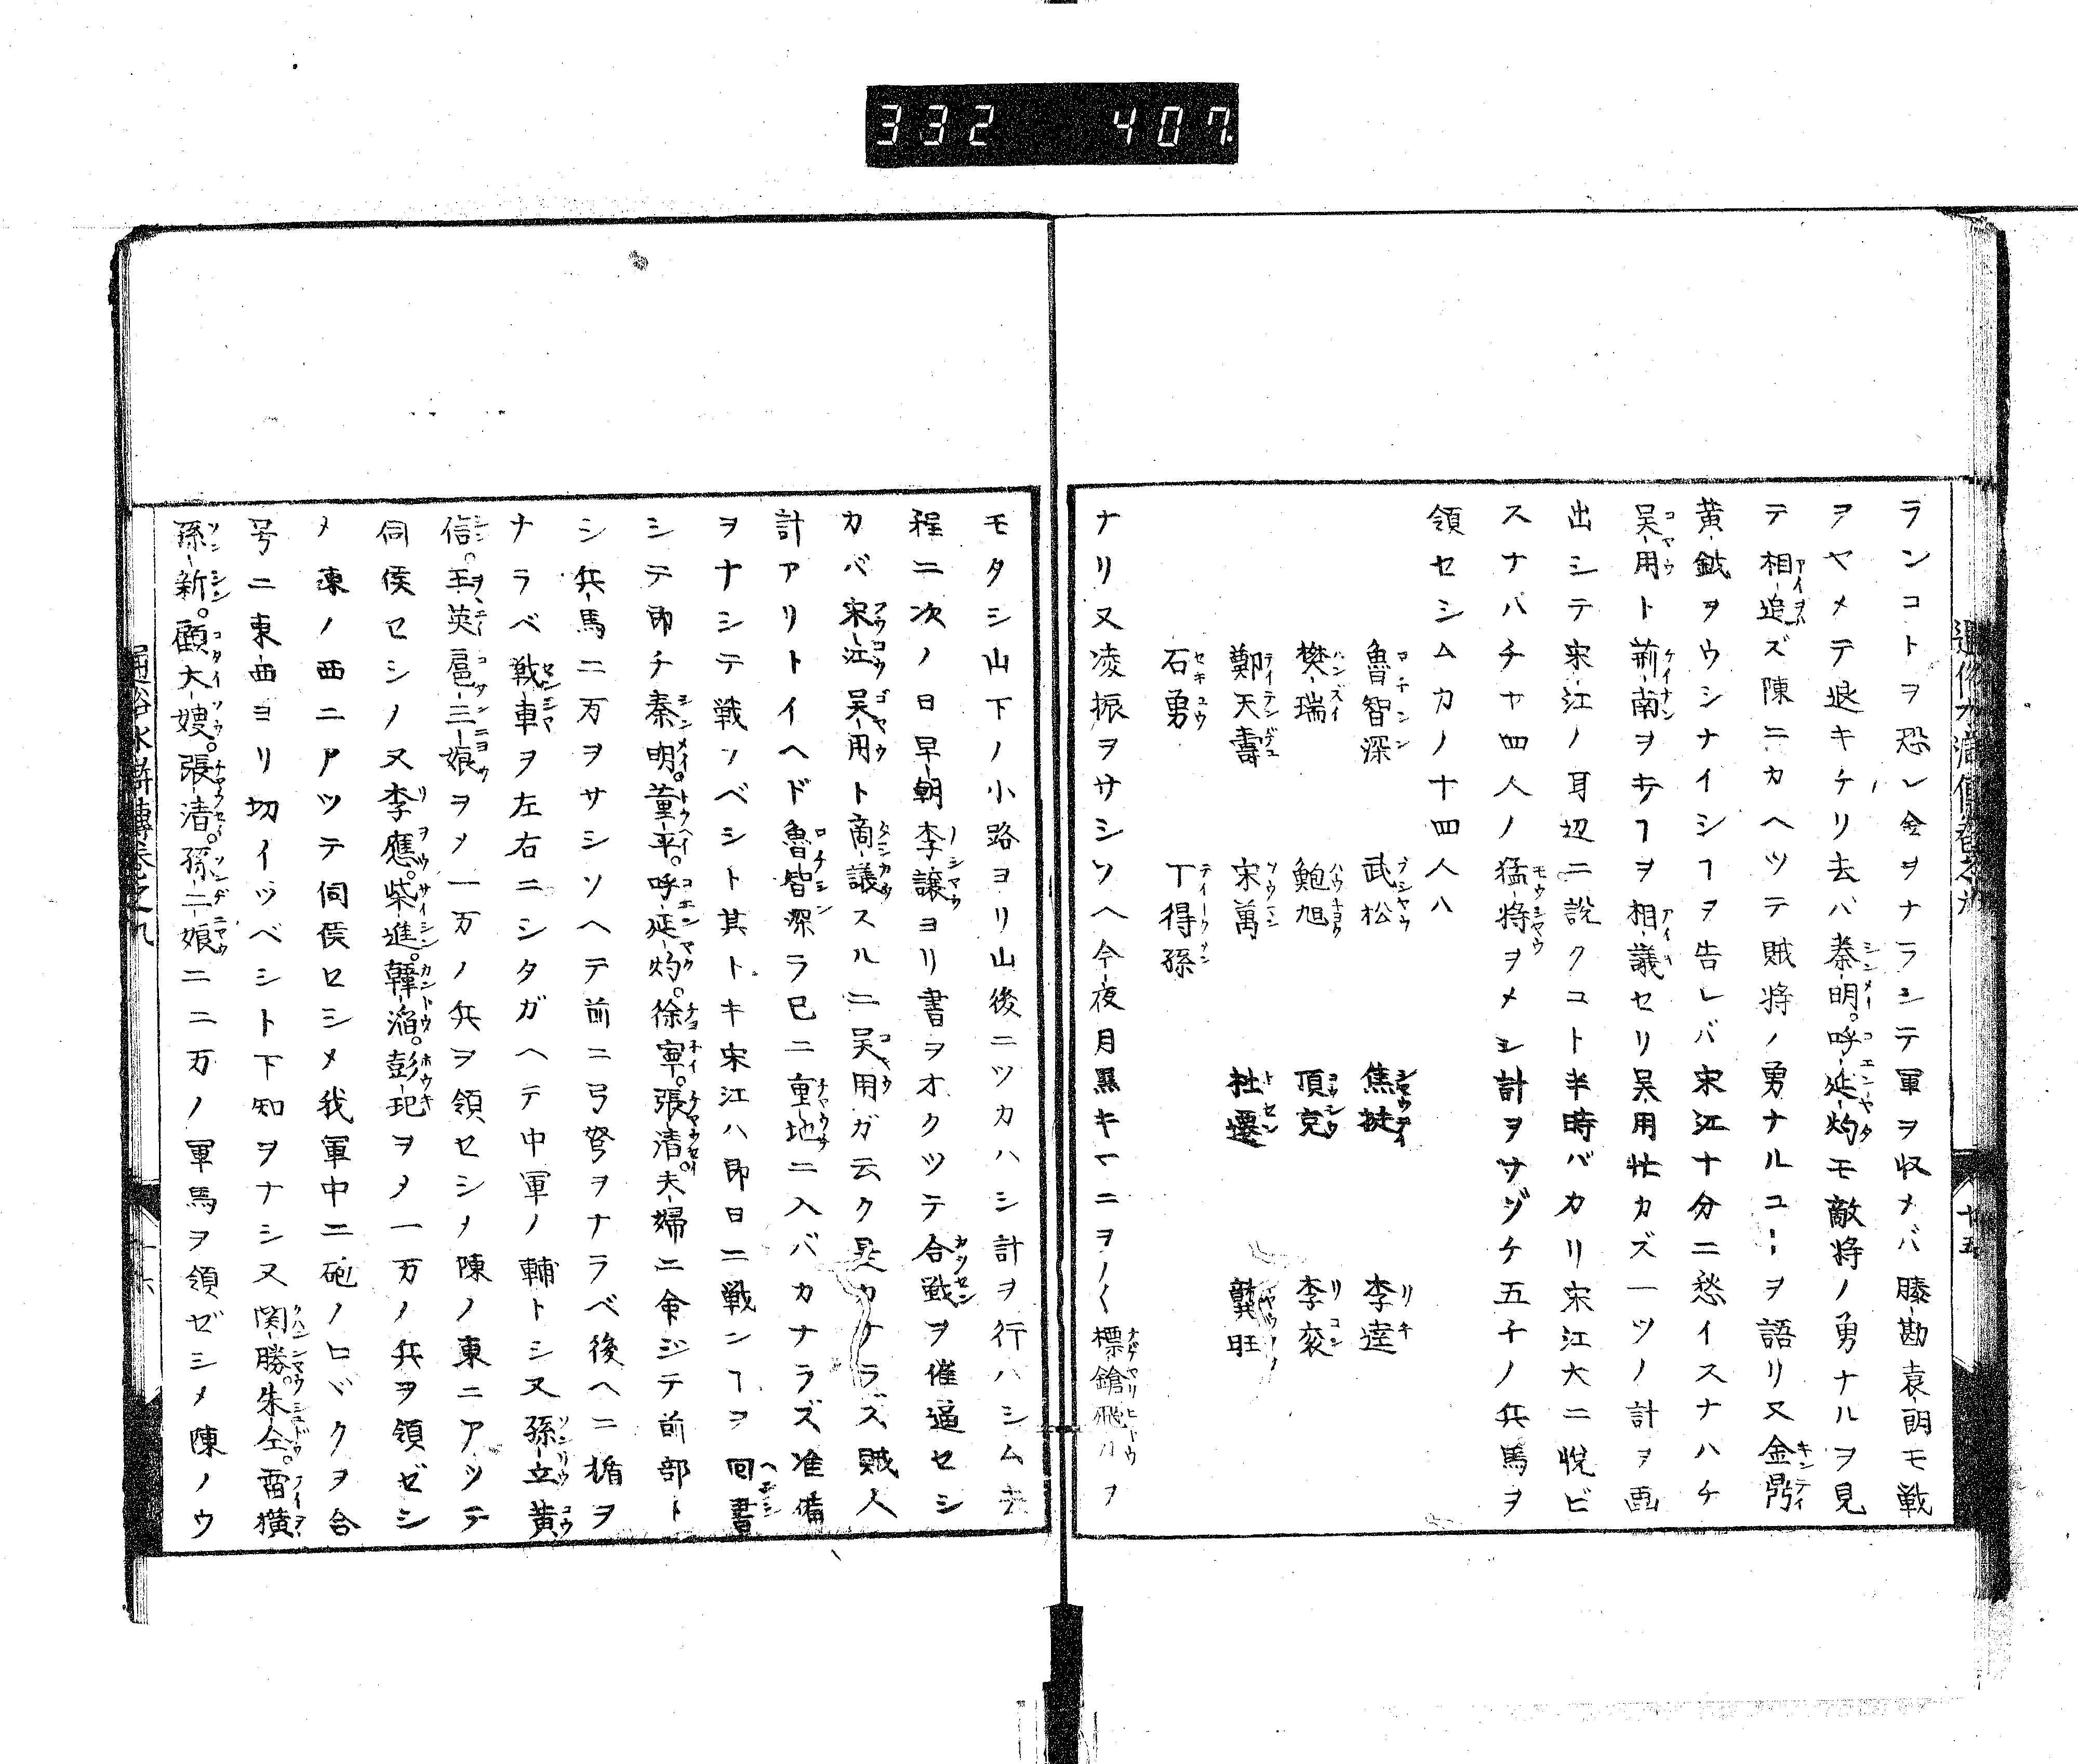 332 407
ランコトヲ恐レ金ヲナラシテ軍ヲ収メバ滕勘袁朗モ戦
ヲヤメテ退キケリ去バ秦明。呼延灼モ敵将ノ勇ナルヲ見
テ相追ズ陳ニカヘツテ賊将ノ勇ナルユーヲ語リ又金鼎
黄鉞ヲウシナイシヿヲ告レバ宋江十分ニ愁イスナハチ
呉用ト荊南ヲキヿヲ相議セリ呉用忙カズ一ツノ計ヲ画
出シテ宋江ノ耳辺ニ説クコト半時バカリ宋江大ニ悦ビ
スナハチヤ四人ノ猛将ヲメシ計ヲサヅケ五千ノ兵馬ヲ
領セシムカノ十四人ハ
魯智深 武松 焦挺 李逵
樊瑞 鮑旭 項充 李袞
鄭天壽 宋萬 杜遷 龔旺
石勇 丁得孫
ナリ又凌振ヲサシソヘ今夜月黒キマニヲノ〱標鎗飛刀ヲ
モタシ山下ノ小路ヨリ山後ニツカハシ計ヲ行ハシム去
程ニ次ノ日早朝李譲ヨリ書ヲオクツテ合戦ヲ催逼セシ
カバ宋江呉用ト商議スルニ呉用ガ云ク是カナラズ賊人
計アリトイヘド魯智深ラ已ニ重地ニ入バカナラズ准備
ヲナシテ戦ソベシト其トキ宋江ハ即日ニ戦ンヿヲ回書
シテ即チ秦明。董平。呼延灼。徐寧。張清夫婦ニ命ジテ前部ト
シ兵馬二万ヲサシソヘテ前ニ弓弩ヲナラベ後ヘニ楯ヲ
ナラベ戦車ヲ左右ニシタガヘテ中軍ノ輔トシ又孫立黄
信。王英扈三娘ヲメ一万ノ兵ヲ領セシメ陳ノ東ニアツテ
伺候セシメ又李應。柴進。韓滔。彭玘ヲメ一万ノ兵ヲ領ゼシ
メ陳ノ西ニアツテ伺候セシメ我軍中ニ砲ノヒヾクヲ合
号ニ東西ヨリ切イヅベシト下知ヲナシ又関勝。朱仝。雷横
孫新。顧大嫂。張清。孫二娘ニ二万ノ軍馬ヲ領ゼシメ陳ノウ